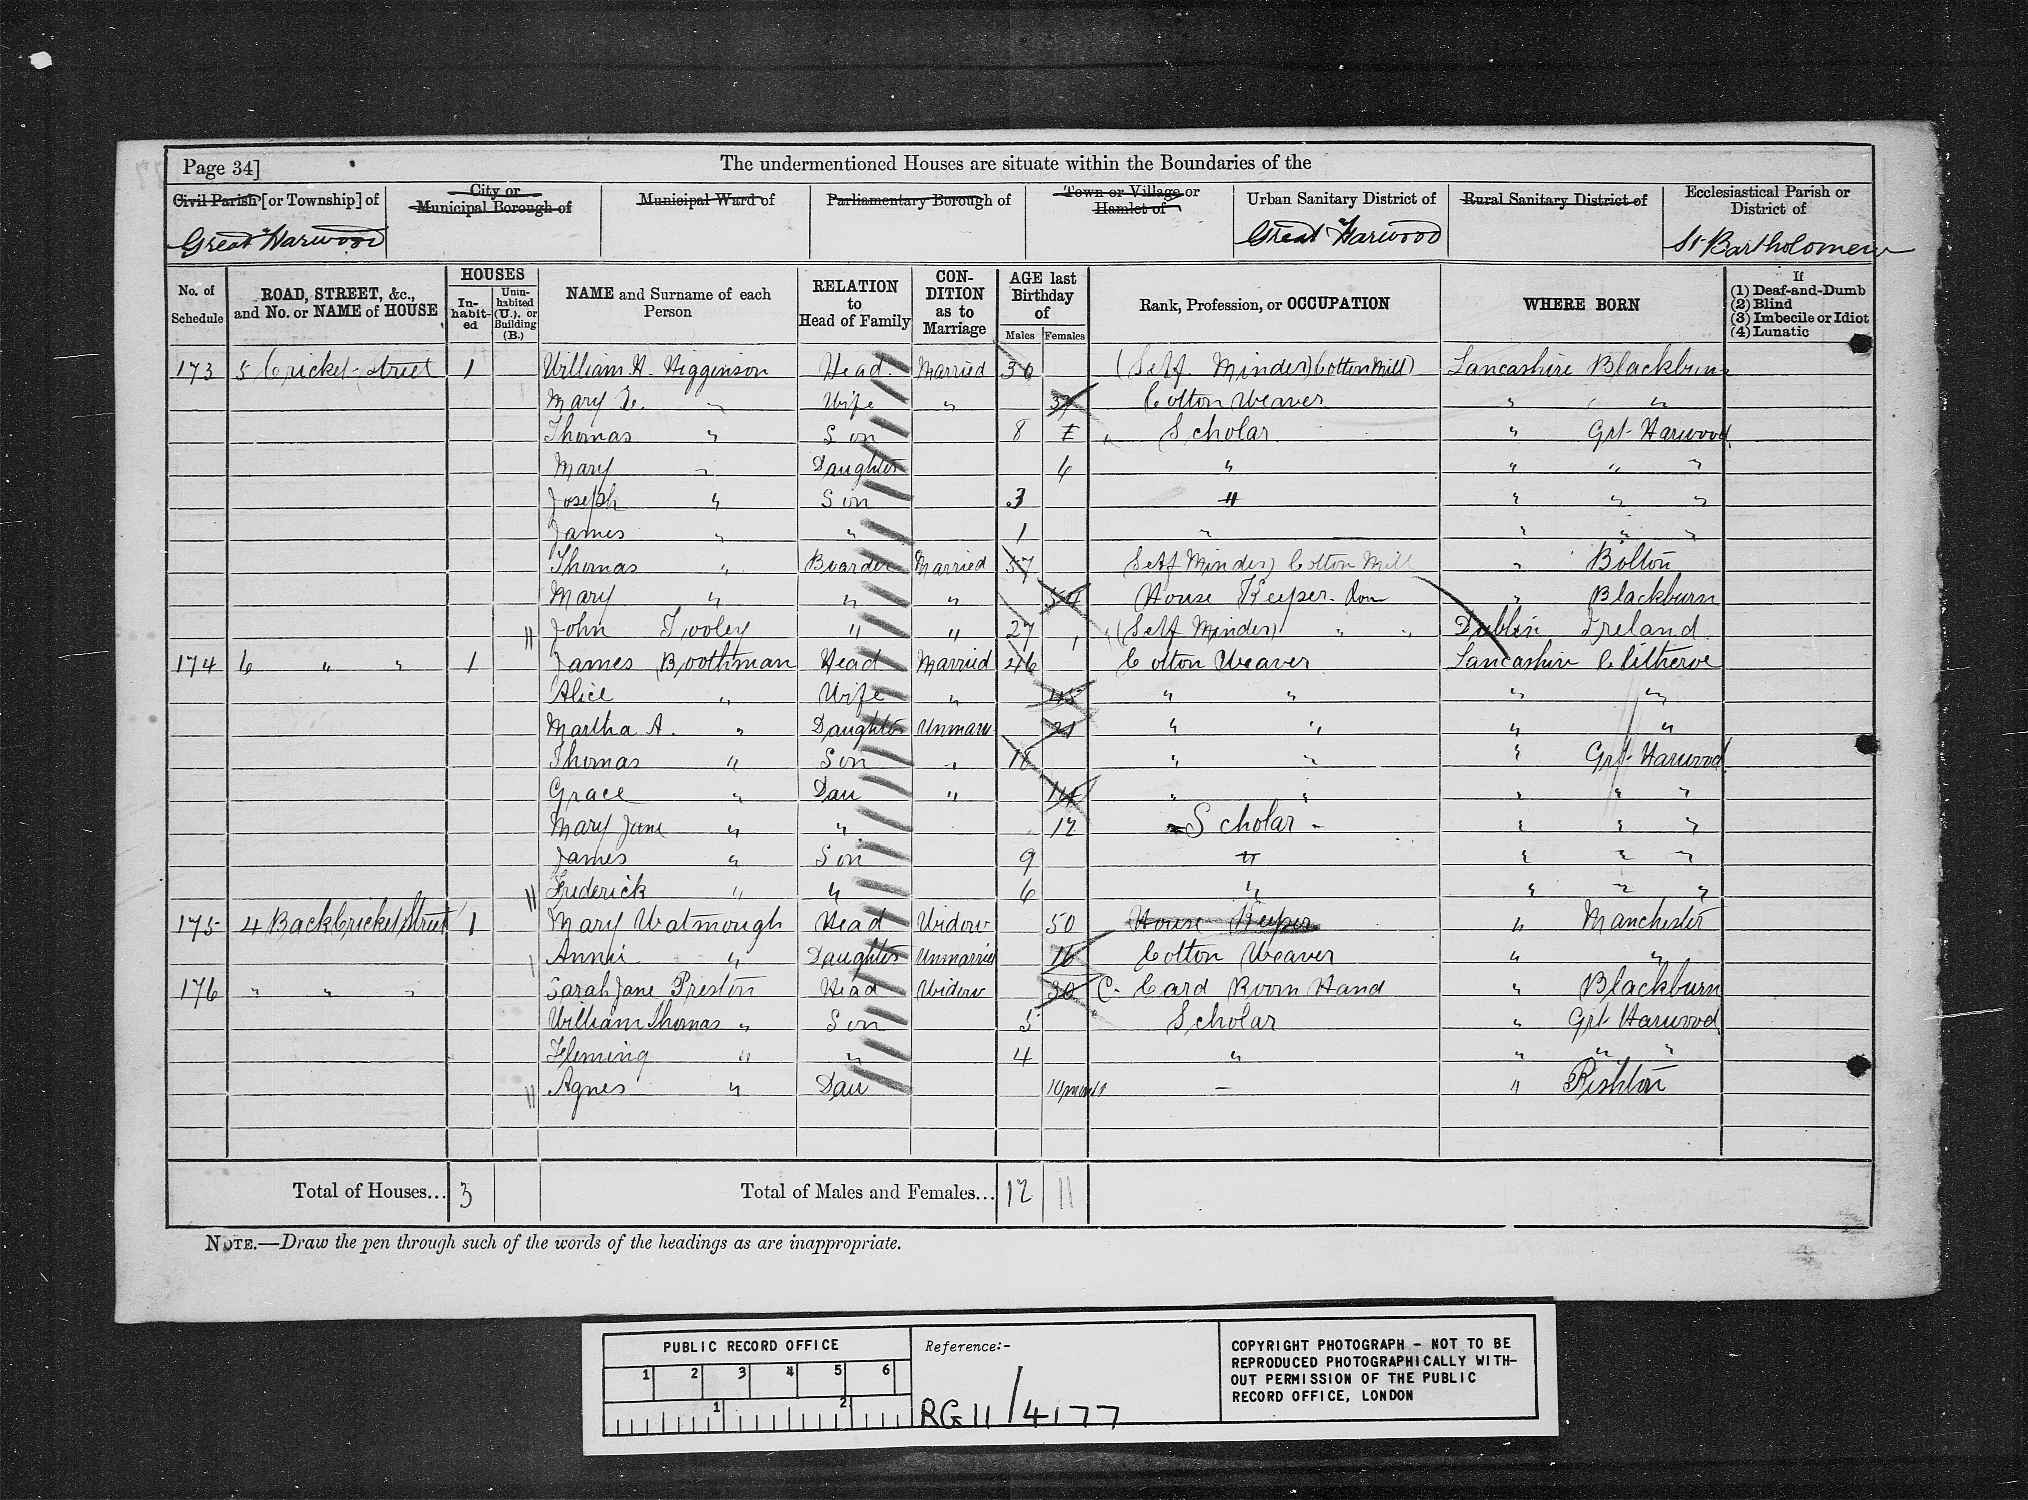 Page 34]
The undermentioned Houses are situate within the Boundaries of the
Civil Parish [or Township] of
City or Municipal Borough of
Municipal Ward of
Parliamentary Borough of
Town or Village or Hamlet of
Urban Sanitary District of
Rural Sanitary District of
Ecclesiastical Parish or District of
Great Harwood Great Harwood St Bartholomew
No. of Schedule
ROAD, STREET, &c., and No. or NAME of HOUSE
HOUSES
In-habit-ed
Unin-habited (U.), or Building (B.)
NAME and Surname of each Person
RELATION to Head of Family
CON-DITION as to Marriage
AGE last Birthday of
Males Females
Rank, Profession, or OCCUPATION
WHERE BORN
If
(1) Deaf-and-Dumb
(2) Blind
(3) Imbecile or Idiot
(4) Lunatic
173 5 Cricket Street 1 William H. Higginson Head Married 30 (Self Minder) Cotton Mill) Lancashire Blackburn
Mary E. " Wife " 37 Cotton Weaver " "
Thomas " Son 8 Scholar " Grt Harwood
Mary " Daughter 6 " " " "
Joseph " Son 3 " " " "
James " " 1 " " " "
Thomas " Boarder Married 57 Self Minder) Cotton Mill " Bolton
Mary " " " House Keeper Dom " Blackburn
John Tooley " " 27 (Self Minder) " " Dublin Ireland
174 6 " " 1 James Boothman Head Married 46 Cotton Weaver Lancashire Clitheroe
Alice " Wife " 45 " " " "
Martha A. " Daughter Unmarr 21 " " " "
Thomas " Son " 18 " " " Grt Harwood
Grace " Dau " 14 " " " " "
Mary Jane " " 12 Scholar " " "
James " Son 9 " " " "
Frederick " " 6 " " " "
175 4 Back Cricket Street 1 Mary Watmough Head Widow 50 House Keeper " Manchester
Annie " Daughter Unmarried 16 Cotton Weaver " "
176 " " " Sarah Jane Preston Head Widow 30 C. Card Room Hand " Blackburn
William Thomas " Son 5 Scholar " Grt Harwood
Fleming " " 4 " " " "
Agnes " Dau 10 months — " Rishton
Total of Houses... 3 Total of Males and Females... 12 11
NOTE.—Draw the pen through such of the words of the headings as are inappropriate.
PUBLIC RECORD OFFICE
1 2 3 4 5 6
1 2
Reference:-
RG 11/4177
COPYRIGHT PHOTOGRAPH - NOT TO BE
REPRODUCED PHOTOGRAPHICALLY WITH-
OUT PERMISSION OF THE PUBLIC
RECORD OFFICE, LONDON